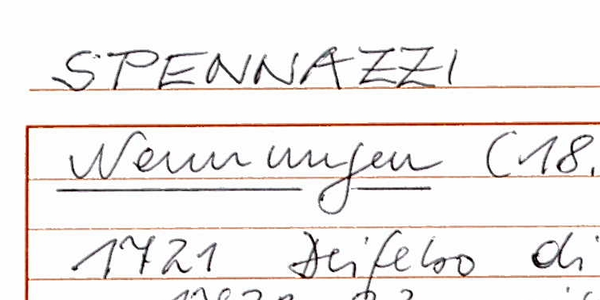 SPENNAZZI
Nennungen (18.
1721 Deifebo di